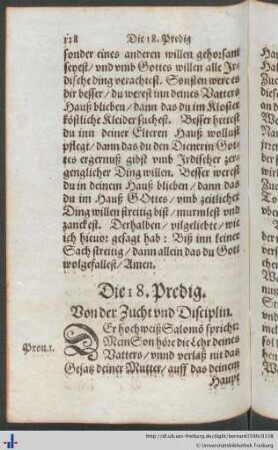 118 Die 18. Predig
sonder eines anderen willen gehorsam
seyest/ vnd vmb Gottes willen alle Jr-
dische ding verachtest. Sonsten were es
dir besser/ du werest inn deines Vatters
Hauß blieben/ dann das du im Kloster
köstliche Kleider suchest. Besser hettest
du inn deiner Elteren Hauß wollust
pflegt/ dann das du den Dienerin Got-
tes ergernuß gibst vmb Jrdischer zer-
genglicher Ding willen. Besser werest
du in deinem Hauß blieben/ dann das
du im Hauß GOttes/ vmb zeitlicher
Ding willen streitig bist/ murmlest vnd
zanckest. Derhalben/ vilgeliebte/ wie
ich hieuor gesagt hab: Biß inn keiner
Sach streitig/ dann allein das du Gott
wolgefallest/ Amen.
Die 18. Predig.
Von der Zucht vnd Disciplin.
DEr hochweiß Salomō spricht:
Mein Son hör die Lehr deines
Prou.1. Vatters/ vnnd verlaß nit das
Gesatz deiner Mutter/ auff das deinem
Haupt
http://dl.ub.uni-freiburg.de/diglit/bernard1599/0318
© Universitätsbibliothek Freiburg